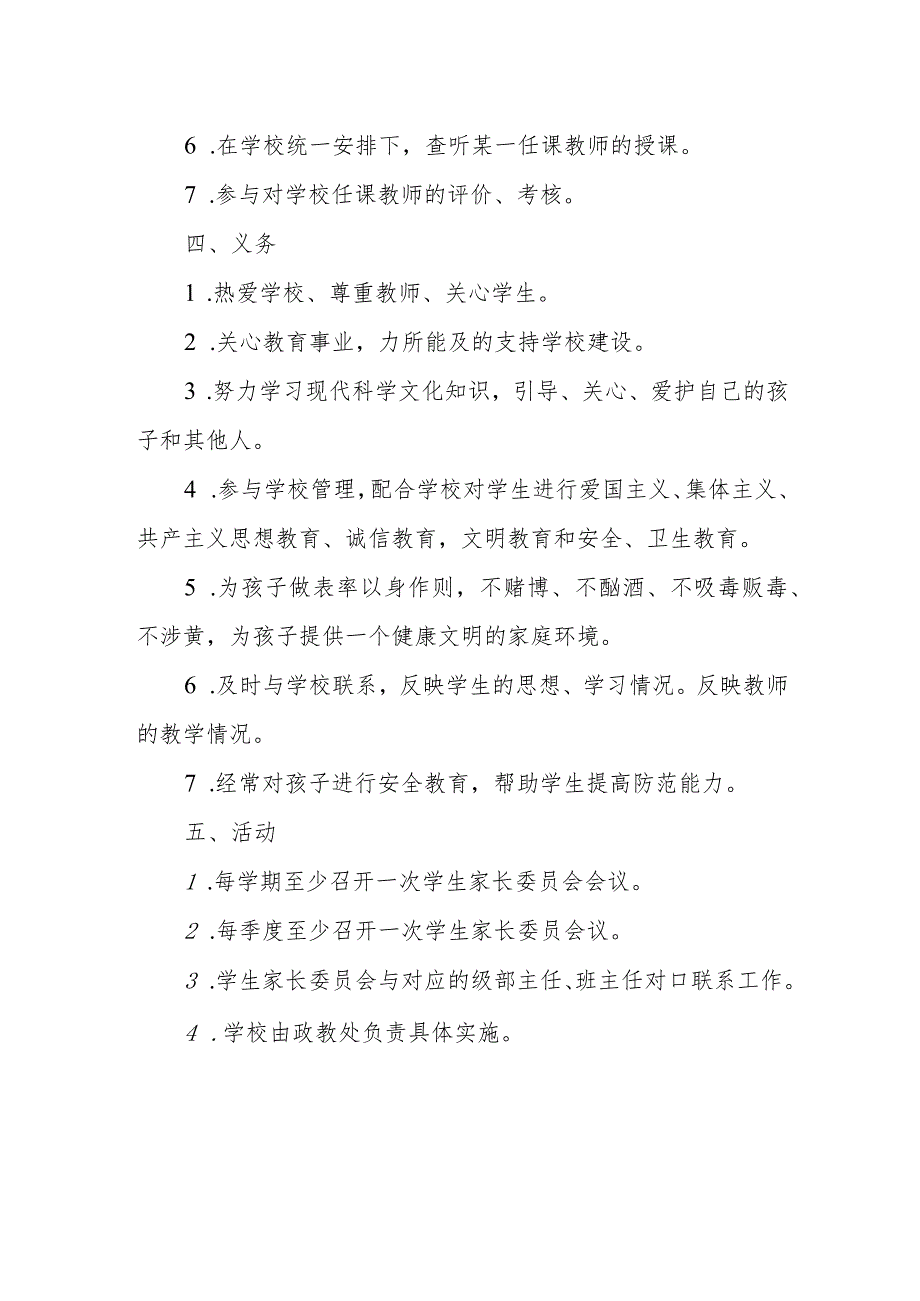 6 .在学校统一安排下，查听某一任课教师的授课。
7 .参与对学校任课教师的评价、考核。
四、义务
1 .热爱学校、尊重教师、关心学生。
2 .关心教育事业，力所能及的支持学校建设。
3 .努力学习现代科学文化知识，引导、关心、爱护自己的孩
子和其他人。
4 .参与学校管理，配合学校对学生进行爱国主义、集体主义、
共产主义思想教育、诚信教育，文明教育和安全、卫生教育。
5 .为孩子做表率以身作则，不赌博、不酗酒、不吸毒贩毒、
不涉黄，为孩子提供一个健康文明的家庭环境。
6 .及时与学校联系，反映学生的思想、学习情况。反映教师
的教学情况。
7 .经常对孩子进行安全教育，帮助学生提高防范能力。
五、活动
1 .每学期至少召开一次学生家长委员会会议。
2 .每季度至少召开一次学生家长委员会议。
3 .学生家长委员会与对应的级部主任、班主任对口联系工作。
4 .学校由政教处负责具体实施。